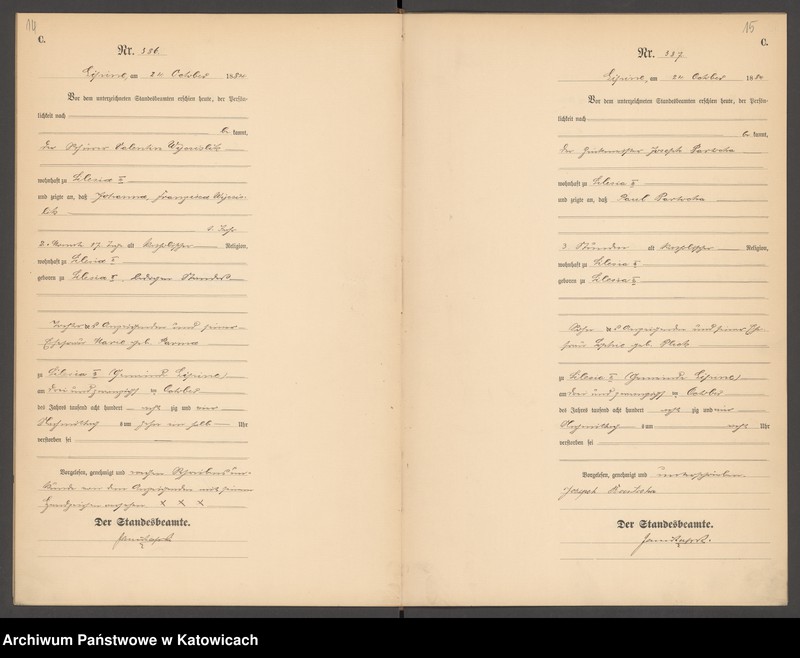 14
C.
Nr. 336
Lipine, am 24 October 1884
Vor dem unterzeichneten Standesbeamten erschien heute, der Persön-
lichkeit nach
be kannt,
der Valentin
wohnhaft zu Silesia II
und zeigte an, daß Johanna Franziska
1. Jahr
2. Monate 17. Tage alt katholischer Religion,
wohnhaft zu Silesia II
geboren zu Silesia II, ledigen Standes
Tochter des Anzeigenden und seiner
Ehefrau Marie geb.
zu Silesia II Gemeinde Lipine
am drei und zwanzigsten October
des Jahres tausend acht hundert acht zig und vier
Nachmittag s um zehn ein halb Uhr
verstorben sei
Vorgelesen, genehmigt und wegen Schreibensun-
kunde von dem Anzeigenden mit seinem
Handzeichen versehen X X X
Der Standesbeamte.
15
C.
Nr. 337
Lipine, am 24 October 1884
Vor dem unterzeichneten Standesbeamten erschien heute, der Persön-
lichkeit nach
be kannt,
der Joseph
wohnhaft zu Silesia II
und zeigte an, daß Paul
3. Stunden alt katholischer Religion,
wohnhaft zu Silesia II
geboren zu Silesia II
Sohn des Anzeigenden und seiner Ehe-
frau geb.
zu Silesia II Gemeinde Lipine
am drei und zwanzigsten October
des Jahres tausend acht hundert acht zig und vier
Nachmittag s um acht Uhr
verstorben sei
Vorgelesen, genehmigt und unterschrieben
Joseph
Der Standesbeamte.
Archiwum Państwowe w Katowicach